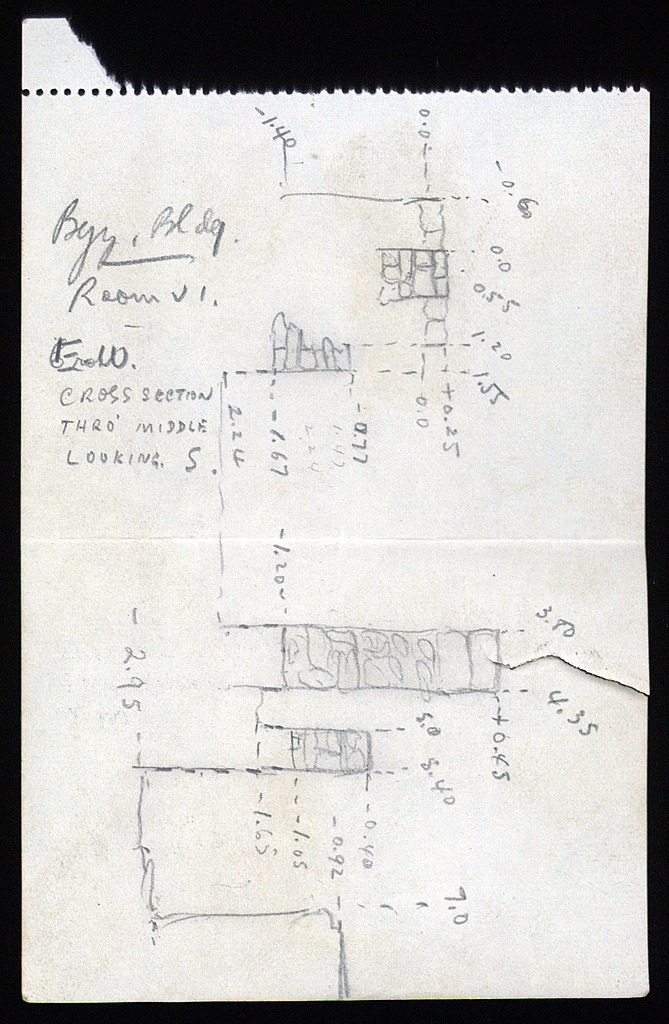 Byz. Bldg.
Room VI.
E to W.
CROSS SECTION
THRO' MIDDLE
LOOKING S.
-1.40
0.0
-0.60
0.0
0.55
1.20
1.55
+0.25
0.0
-0.77
1.47
2.24
-1.67
2.24
-1.20
3.80
4.35
+0.45
-2.95
5.0
5.40
-1.65
-1.05
-0.92
-0.40
7.0